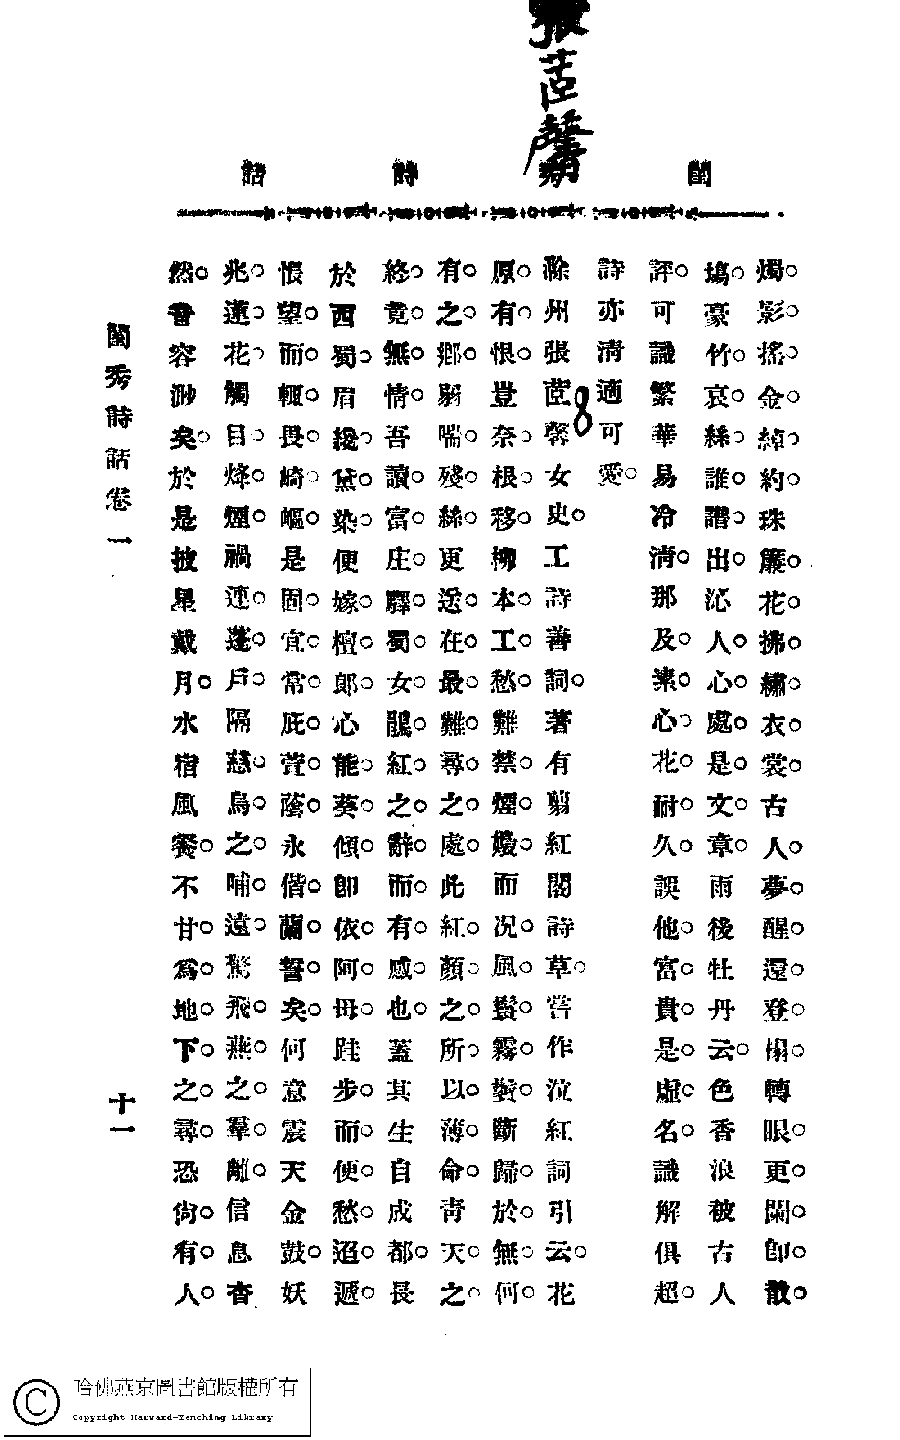 張茝馨
閨秀詩話
燭影搖金綽約珠簾花拂繡衣裳古人夢醒還登榻轉眼更闌卽散
塲豪竹哀絲誰譜出沁人心處是文章雨後牡丹云色香浪被古人
評可識繁華易冷淸那及素心花耐久誤他富貴是虛名識解俱超
詩亦淸適可愛
滁州張茝馨女史工詩善詞著有翦紅閣詩草嘗作泣紅詞引云花
原有恨豈奈根移柳本工愁難禁煙嬝而况風鬟霧鬢斷歸於無何
有之鄕躬喘殘絲更送在最難尋之處此紅顏之所以薄命靑天之
終竟無情吾讀富庄驛蜀女鵑紅之辭而有感也蓋其生自成都長
於西蜀眉纔黛染便嫁檀郞心能葵傾卽依阿母跬步而便愁迢遞
悵望而輒畏崎嶇是固宜常庇萱蔭永偕蘭誓矣何意震天金鼓妖
兆蓮花觸目烽煙禍連蓬戶隔慈烏之哺遠驚飛燕之羣離信息杳
然音容渺矣於是披星戴月水宿風餐不甘爲地下之尋恐尙有人
閨秀詩話卷一
十一
哈佛燕京圖書館版權所有
Copyright Harvard-Yenching Library